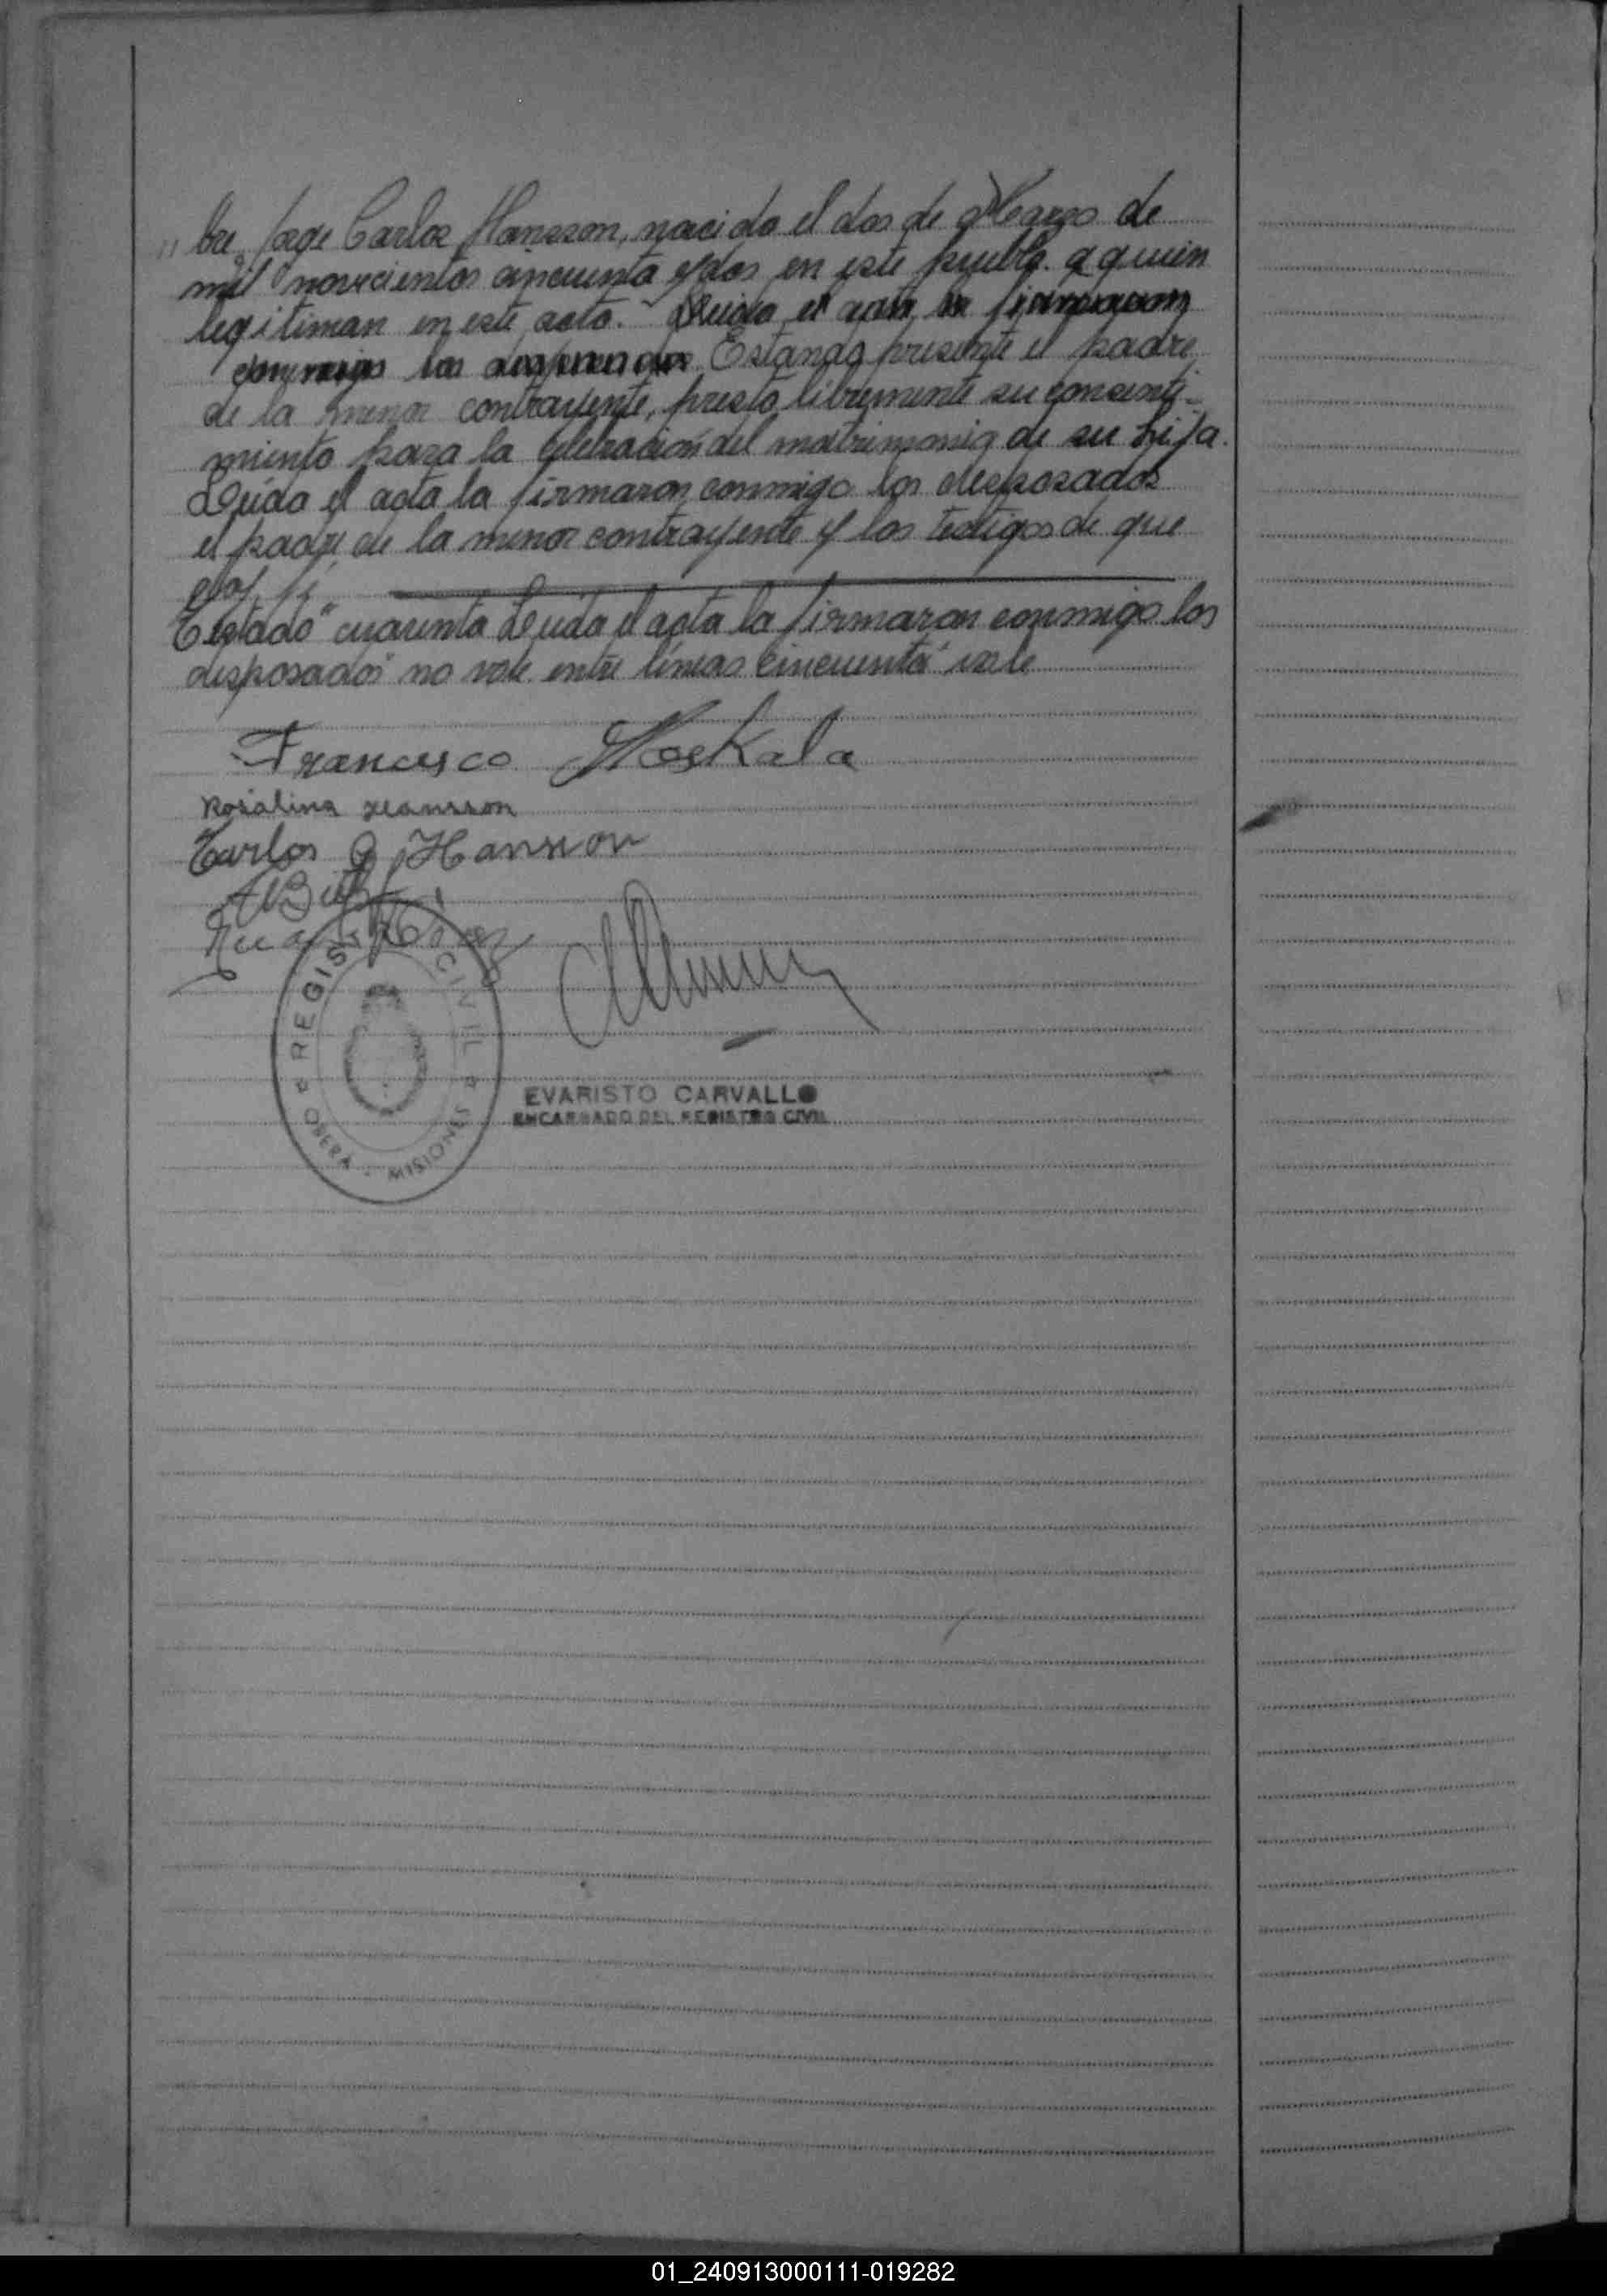 " bre Jorge Carlos Hansson, nacido el dos de Marzo de
mil novecientos cincuenta y dos en este pueblo. a quien
legitiman en este acto. Leida el acta la firmaron
conmigo los desposados Estando presente el padre
de la menor contrayente, prestó libremente su consenti-
miento para la celebración del matrimonio de su hija.
Leída el acta la firmaron conmigo los desposados
el padre de la menor contrayente y los testigos de que
doy fé
Testado "cuarenta Leída el acta la firmaron conmigo los
desposados" no vale entre líneas "cincuenta" vale
Francisco Moskala
Rosalina Hansson
Carlos G Hansson
REGISTRO CIVIL
OBERA - MISIONES
EVARISTO CARVALLO
ENCARGADO DEL REGISTRO CIVIL
01_240913000111-019282